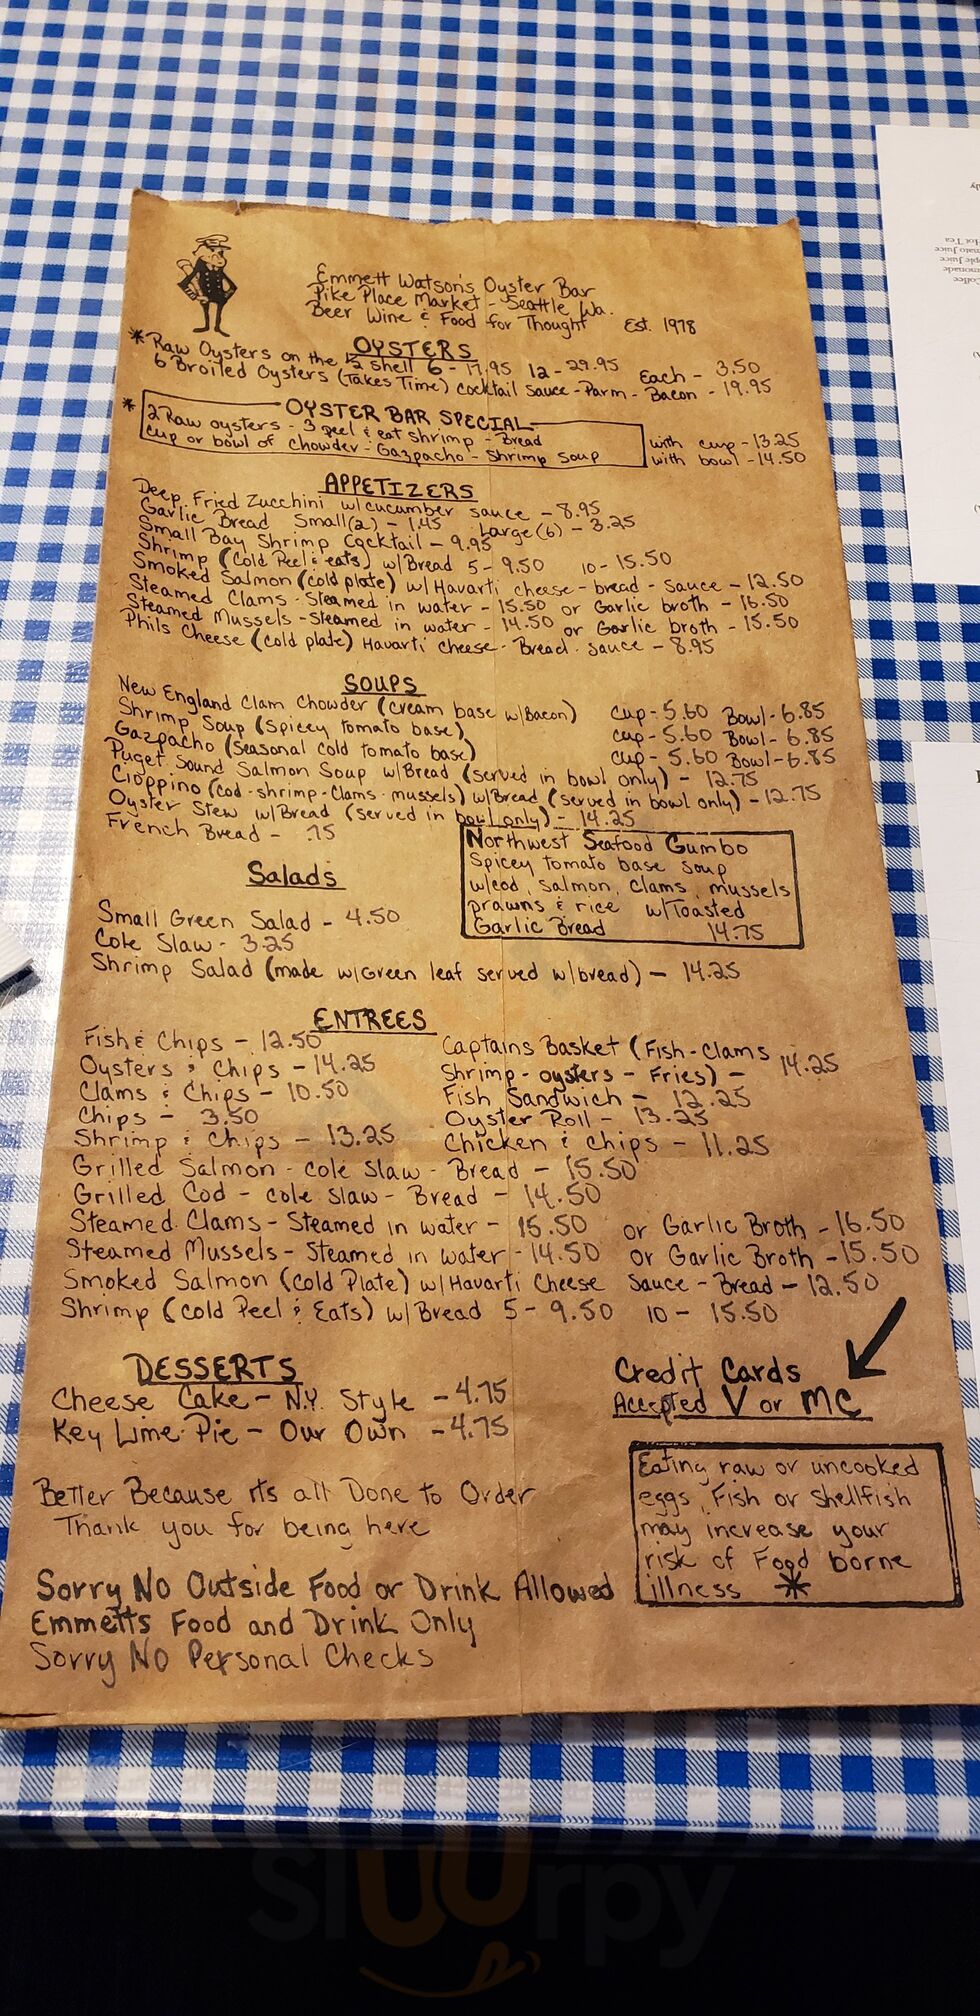 Emmett Watson's Oyster Bar
Pike Place Market - Seattle Wa.
Beer Wine & Food for Thought Est. 1978
OYSTERS
* Raw Oysters on the ½ shell 6 - 17.95 12 - 29.95 Each - 3.50
6 Broiled Oysters (Takes Time) Cocktail Sauce - Parm - Bacon - 19.95
* OYSTER BAR SPECIAL
2 Raw oysters - 3 peel & eat shrimp - Bread
cup or bowl of chowder - Gazpacho - Shrimp soup
with cup - 13.25
with bowl - 14.50
APPETIZERS
Deep Fried Zucchini w/cucumber sauce - 8.95
Garlic Bread Small(2) - 1.45 Large(6) - 3.25
Small Bay Shrimp Cocktail - 9.95
Shrimp (Cold Peel & eats) w/Bread 5 - 9.50 10 - 15.50
Smoked Salmon (cold plate) w/Havarti cheese - bread - sauce - 12.50
Steamed Clams - Steamed in water - 15.50 or Garlic broth - 16.50
Steamed Mussels - Steamed in water - 14.50 or Garlic broth - 15.50
Phils Cheese (cold plate) Havarti cheese - Bread - sauce - 8.95
SOUPS
New England Clam Chowder (cream base w/Bacon) Cup - 5.60 Bowl - 6.85
Shrimp Soup (Spicey tomato base) Cup - 5.60 Bowl - 6.85
Gazpacho (seasonal cold tomato base) Cup - 5.60 Bowl - 6.85
Puget Sound Salmon Soup w/Bread (served in bowl only) - 12.75
Cioppino (cod - shrimp - clams - mussels) w/Bread (served in bowl only) - 12.75
Oyster Stew w/Bread (served in bowl only) - 14.25
French Bread - .75
Northwest Seafood Gumbo
Spicey tomato base soup
w/cod, salmon, clams, mussels
prawns & rice w/Toasted
Garlic Bread 14.75
Salads
Small Green Salad - 4.50
Cole Slaw - 3.25
Shrimp Salad (made w/Green leaf served w/bread) - 14.25
ENTREES
Fish & Chips - 12.50
Oysters & Chips - 14.25
Clams & Chips - 10.50
Chips - 3.50
Shrimp & Chips - 13.25
Captains Basket (Fish - Clams
Shrimp - oysters - Fries) - 14.25
Fish Sandwich - 12.25
Oyster Roll - 13.25
Chicken & chips - 11.25
Grilled Salmon - cole slaw - Bread - 15.50
Grilled Cod - cole slaw - Bread - 14.50
Steamed Clams - Steamed in water - 15.50 or Garlic Broth - 16.50
Steamed Mussels - Steamed in water - 14.50 or Garlic Broth - 15.50
Smoked Salmon (cold Plate) w/Havarti Cheese Sauce - Bread - 12.50
Shrimp (cold Peel & Eats) w/Bread 5 - 9.50 10 - 15.50
DESSERTS
Cheese Cake - N.Y. Style - 4.75
Key Lime Pie - Our Own - 4.75
Credit Cards
Accepted V or MC
Better Because its all Done to Order
Thank you for being here
Eating raw or uncooked
eggs, Fish or shellfish
may increase your
risk of Food borne
illness *
Sorry No Outside Food or Drink Allowed
Emmetts Food and Drink Only
Sorry No Personal Checks
Hot Tea
Coffee
sluurpy